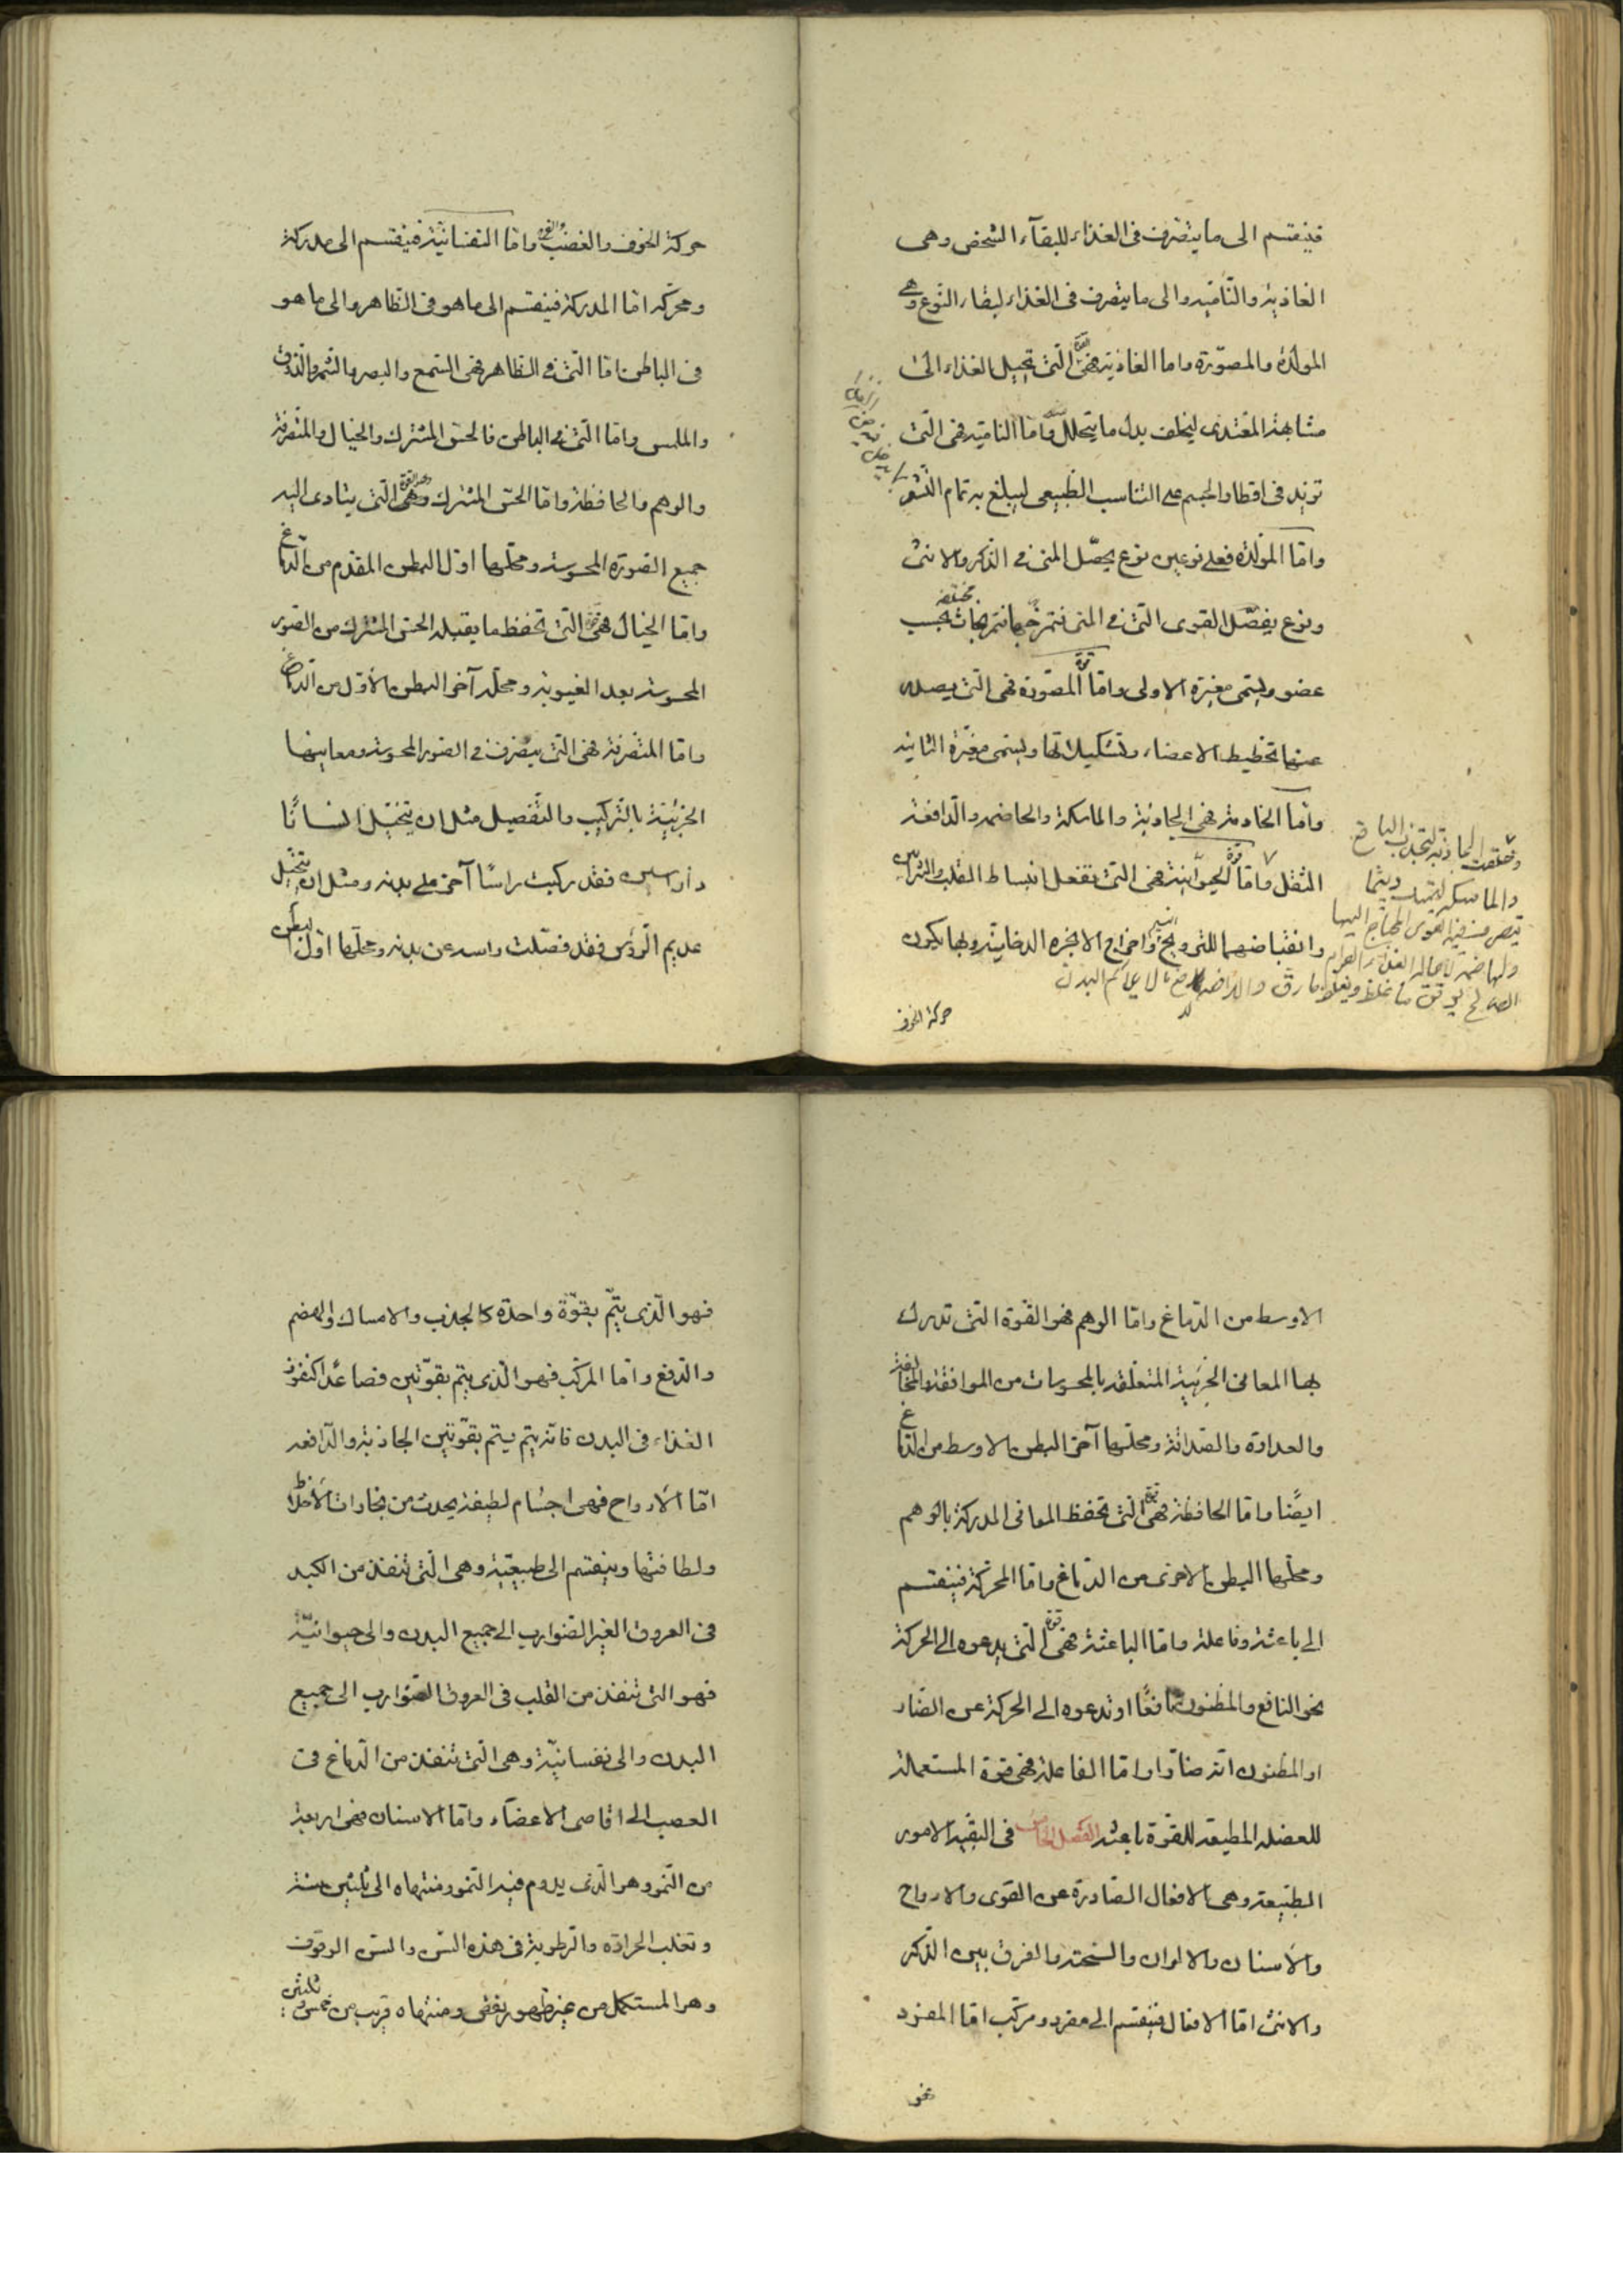 فينقسم الى ما يتصرف فى الغذاء للبقآء الشخص وهى
الغاذية والنامية والى ما يتصرف فى الغذاء لبقاء النوع وهى
المولدة والمصوّرة واما الغاذية فهى قوة التى تحيل الغذاء الى
مشابهة المغتذى ليخلف بدل ما يتحلل واما النامية فهى التى
تزيد فى اقطار الجسم على التناسب الطبيعى ليبلغ به تمام النشو
واما المولدة فعلى نوعين نوع يحصّل المنى فى الذكر والانثى
ونوع يفصّل القوى التى فى المنى فتمزجها تمزيجات مختلفة بحسب
عضو ويسمى مغيرة الاولى واما المصورة فهى التى يصدر
عنها تخطيط الاعضاء وتشكيلاتها ويسمى مغيّرة الثانية
واما الخادمة فهى الجاذبة والماسكة والهاضمة والدافعة
الثقل واما قوة الحيوانية فهى التى تفعل انبساط القلب والشرايين
وانقباضهما للترويح النسيم واخراج الابخرة الدخانية وبها يكون
وخلقت الجاذبة لتجذب النافع
والماسكة لتمسك ريثما
تتصرف فيه القوى المحتاج اليها
والهاضمة لاحالة الغذاء الى القوام
الصالح يرقق ما غلظ ويغلظ ما رق والدافعة لدفع ما لا يلائم البدن
حركة الخوف
حركة الخوف والغضب واما النفسانية فينقسم الى مدركة
ومحركة اما المدركة فينقسم الى ما هو فى الظاهر والى ما هو
فى الباطن اما التى فى الظاهر فهى السمع والبصر والشم والذوق
والملمس واما التى فى الباطن فالحس المشترك والخيال والمتصرفة
والوهم والحافظة واما الحس المشترك وهى القوة التى يتادى اليه
جميع الصورة المحسوسة ومحلها اول البطن المقدم من الدماغ
واما الخيال فهى قوة التى تحفظ ما يقبله الحس المشترك من الصور
المحسوسة بعد الغيبوبة ومحله آخر البطن الاول من الدماغ
واما المتصرفة فهى التى يتصرف فى الصور المحسوسة ومعانيها
الجزئية بالتركيب والتفصيل مثل ان يتخيل انسانًا
ذا راسين فقد ركبت راسًا آخر على بدنه ومثل ان يتخيل
عديم الرؤس فقد فصلت راسه عن بدنه ومحلها اول البطن
الاوسط من الدماغ واما الوهم فهو القوة التى تدرك
بها المعانى الجزئية المتعلقة بالمحسوسات من الموافقة والمخالفة
والعداوة والصداقة ومحلها آخر البطن الاوسط من الدماغ
ايضًا واما الحافظة فهى قوة التى تحفظ المعانى المدركة بالوهم
ومحلها البطن الاخرى من الدماغ واما المحركة فينقسم
الى باعثة وفاعلة واما الباعثة فهى قوة التى يدعوه الى الحركة
نحو النافع والمظنون نافعًا او تدعوه الى الحركة عن الضار
او المظنون انه ضارا واما الفاعلة فهى قوة المستعملة
للعضلة المطيعة للقوة باعثة الفصل الخامس فى البقية الامور
الطبيعة وهى الافعال الصادرة عن القوى والارواح
والاسنان والالوان والسحنة والفرق بين الذكر
والانثى اما الافعال فينقسم الى مفرد ومركب اما المفرد
فهو الذى يتم بقوّة واحدة كالجذب والامساك والهضم
والدفع واما المركب فهو الذى يتم بقوّتين فصاعدًا كنفوذ
الغذاء فى البدن فانه يتم يتم بقوّتين الجاذبة والدافعة
امّا الارواح فهى اجسام لطيفة يحدث من بخارات الاخلاط
ولطافتها وينقسم الى طبيعيّة وهى التى تنفذ من الكبد
فى العروق الغير الضوارب الى جميع البدن والى حيوانيّة
فهو التى تنفذ من القلب فى العروق الضوارب الى جميع
البدن والى نفسانيّة وهى التى تنفذ من الدماغ فى
العصب الى اقاصى الاعضآء واما الاسنان فهى اربعة
من النمو وهو الذى يدوم فيه النمو ومنتهاه الى ثلثين سنة
وتغلب الحرارة والرطوبة فى هذه السن والسن الوقوف
وهو المستكمل من غير ظهور نقص ومنتهاه قريب من خمس وثلثين